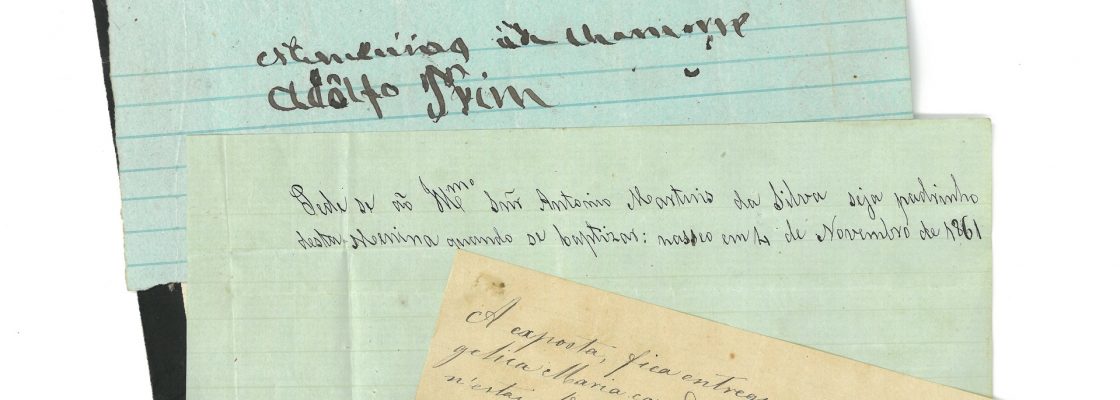 estemenino
chamarse
Adôlfo Prim
Pede se ao Illmº Snr Antonio Martins da Silva seja padrinho
desta Menina quando se baptizar: nasseo em 4 de Novembro de 1861
A exposta, fica entreg
gelica Maria ca
n'esta